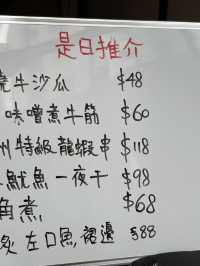 是日推介
牛沙瓜 $48
味噌煮牛筋 $60
州特級龍蝦串 $118
魷魚一夜干 $98
角煮 $68
炙左口魚裙邊 $88